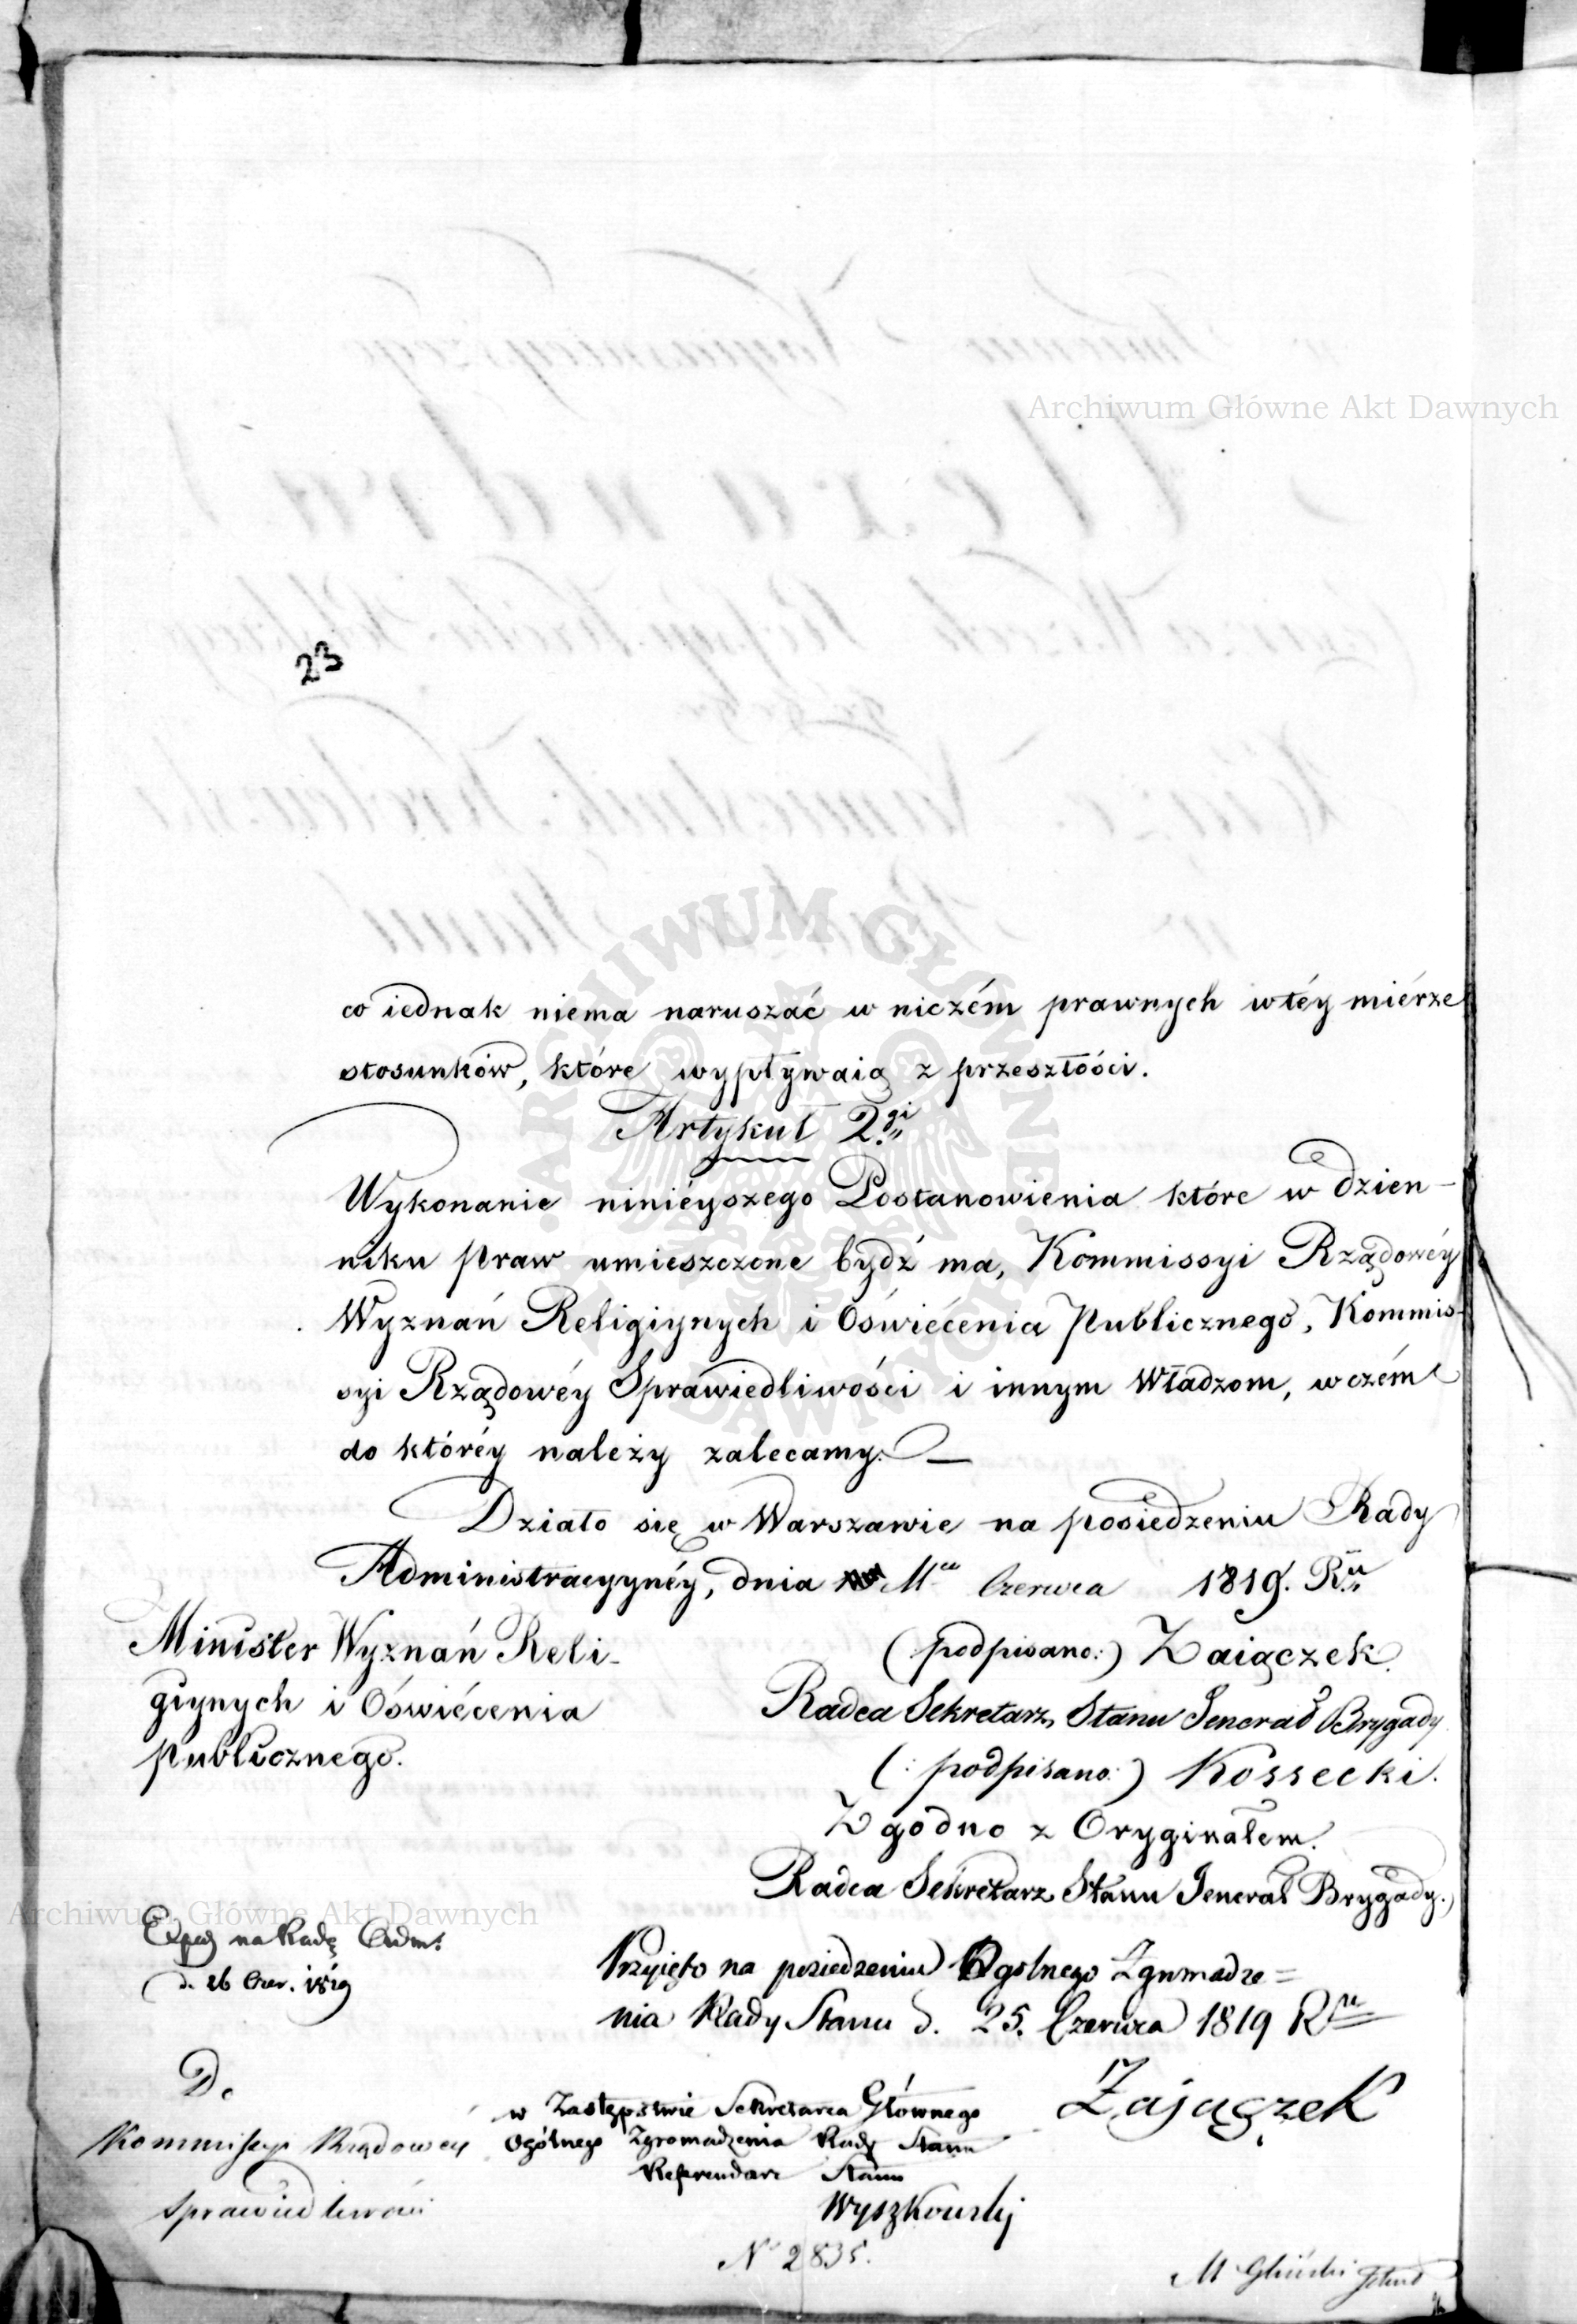 Archiwum Główne Akt Dawnych
23
co iednak niema naruszać w niczém prawnych w téy miérze
stosunków, które wypływaią z przeszłości.
Artykuł 2gi
Wykonanie ninieyszego Postanowienia które w dzien-
niku praw umieszczone bydź ma, Kommissyi Rządowéy
Wyznań Religiynych i Oświécenia Publicznego, Kommis-
syi Rządowéy Sprawiedliwości i innym Władzom, w czém
do któréy należy zalecamy. —
Działo się w Warszawie na posiedzeniu Rady
Administracyynéy, dnia Mca Czerwca 1819. Ru
Minister Wyznań Reli-
giynych i Oświécenia
publicznego.
(podpisano:) Zaiączek.
Radca Sekretarz Stanu Jenerał Brygady
(: podpisano:) Kossecki.
Zgodno z Oryginałem.
Radca Sekretarz Stanu Jenerał Brygady.
Archiwum Główne Akt Dawnych
na Radę Adm:
d. 26 Czer. 1819
Przyięto na posiedzeniu Ogolnego Zgromadze=
nia Rady Stanu d. 25. Czerwca 1819 Ru
Zajączek
w Zastępstwie Sekretarza Głównego
Ogólnego Zgromadzenia Rady Stanu
Referendarz Stanu
Wyszkowski
Do
Kommissyi Rządowéy
Sprawiedliwości
N 2835.
M Gliński
ARCHIWUM GŁÓWNE AKT DAWNYCH